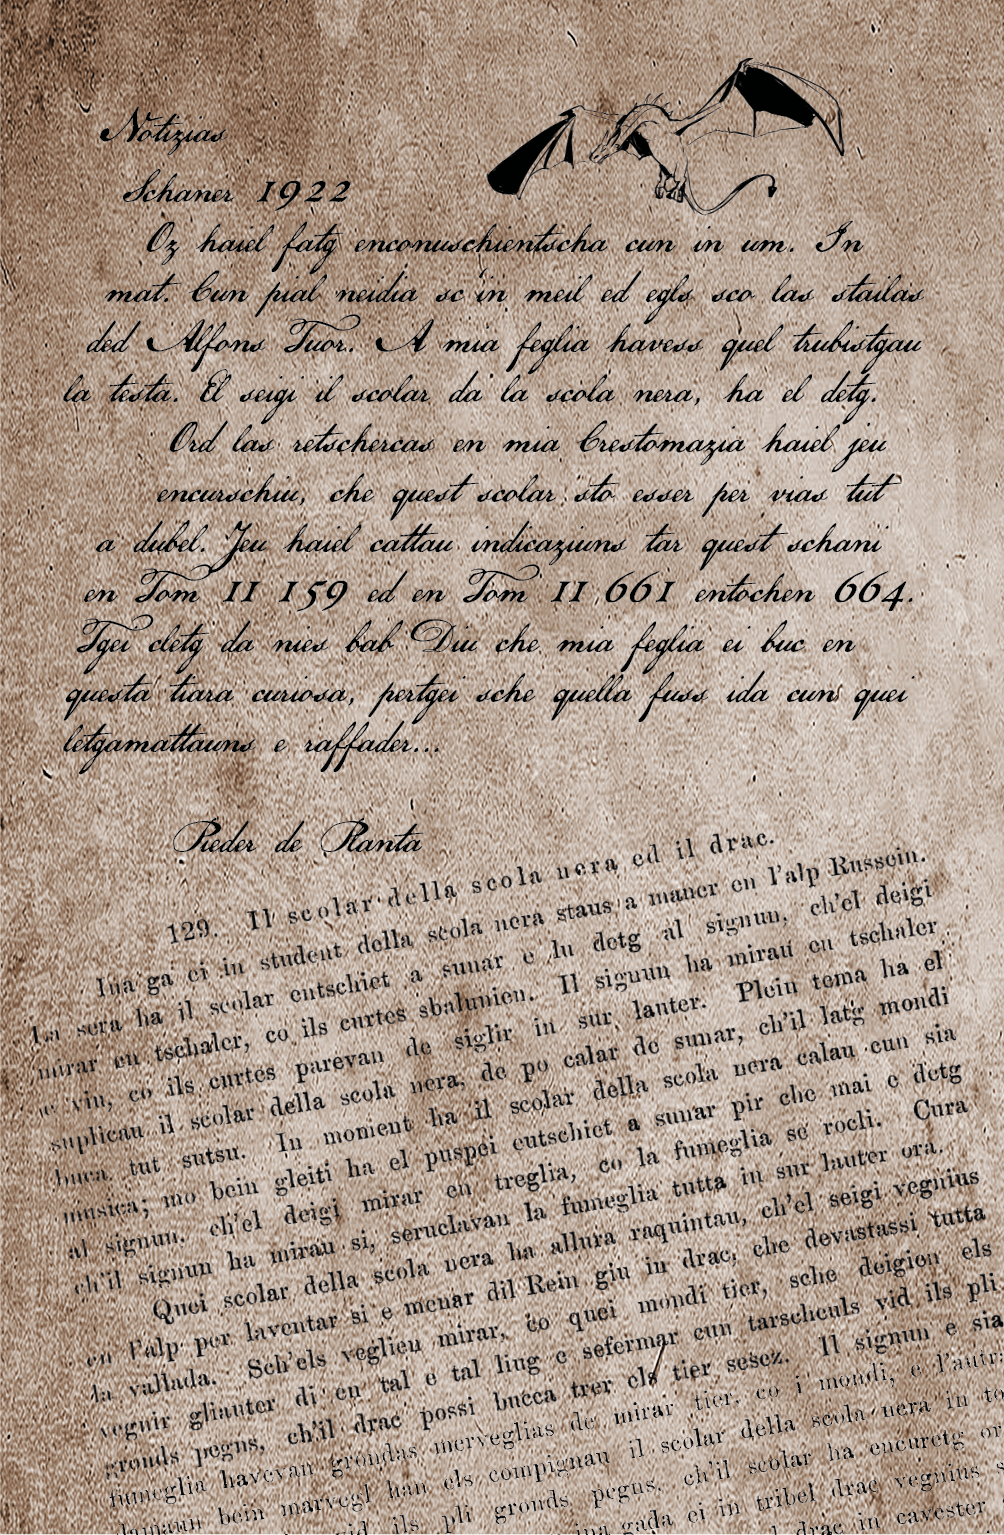 Notizias
Schaner 1922
Oz haiel fatg enconuschientscha cun in um. In
mat. Cun pial neidia sc'in meil ed egls sco las stailas
ded Alfons Tuor. A mia feglia havess quel trubistgau
la testa. El seigi il scolar da la scola nera, ha el detg.
Ord las retschercas en mia Crestomazia haiel jeu
encurschiu, che quest scolar sto esser per vias tut
a dubel. Jeu haiel cattau indicaziuns tar quest schani
en Tom II 159 ed en Tom II 661 entochen 664.
Tgei cletg da nies bab Diu che mia feglia ei buc en
questa tiara curiosa, pertgei sche quella fuss ida cun quei
letgamattauns e raffader...
Pieder de Planta
129. Il scolar della scola nera ed il drac.
Ina ga ei in student della scola nera staus a maner en l'alp Russein.
La sera ha il scolar entschiet a sunar e lu detg al signun, ch'el deigi
mirar en tschaler, co ils curtes sbalunien. Il signun ha mirau en tschaler
e viu, co ils curtes parevan de siglir in sur lauter. Plein tema ha el
suplicau il scolar della scola nera, de po calar de sunar, ch'il latg mondi
buca tut sutsu. In moment ha il scolar della scola nera calau cun sia
musica; mo bein gleiti ha el puspei entschiet a sunar pir che mai e detg
al signun, ch'el deigi mirar en treglia, co la fumeglia se rocli. Cura
ch'il signun ha mirau si, seruclavan la fumeglia tutta in sur lauter ora.
Quei scolar della scola nera ha allura raquintau, ch'el seigi vegnius
en l'alp per laventar si e menar dil Rein giu in drac, che devastassi tutta
la vallada. Sch'els veglien mirar, co quei mondi tier, sche deigien els
vegnir gliauter di en tal e tal liug e sefermar cun tarscheuls vid ils pli
gronds pegns, ch'il drac possi bucca trer els tier sesez. Il signun e sia
fumeglia havevan grondas merveglias de mirar tier, co i mondi, e l'autra
damaun bein marvegl han els compignau il scolar della scola nera in to
vid ils pli gronds pegns, ch'il scolar ha encuretg or
ina gada ei in tribel drac vegnius s
drac in cavester